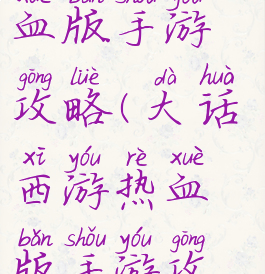 xuè bǎn shǒu yóu
血版手游
gōng lüè dà huà
攻略(大话
xī yóu rè xuè
西游热血
bǎn shǒu yóu gōng
版手游攻